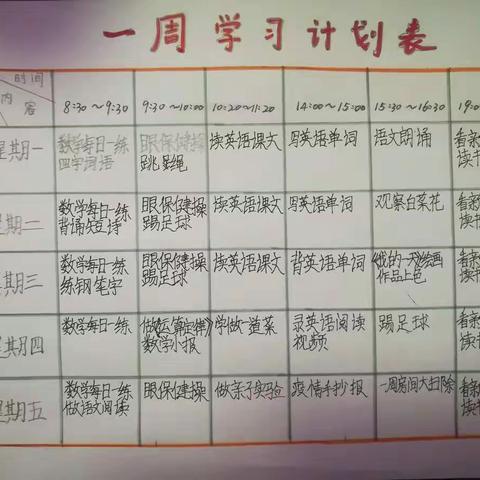 一周学习计划表
时间
内容
8:30~9:30 9:30~10:00 10:20~11:20 14:00~15:00 15:30~16:30 19:0
星期一 数学每日一练 眼保健操 读英语课文 写英语单词 语文朗诵 看新
四字词语 跳绳 读书
星期二 数学每日一练 眼保健操 读英语课文 写英语单词 观察白菜花 看新
背诵短诗 踢足球 读书
星期三 数学每日一练 眼保健操 读英语课文 背英语单词 《我的一天》绘画 看新
练钢笔字 踢足球 作品上色 读书
星期四 数学每日一练 做《运算定律》 学做一道菜 录英语阅读 踢足球 看新
数学小报 视频 读书
星期五 数学每日一练 眼保健操 做亲子实验 疫情手抄报 一周房间大扫除 看新
做语文阅读 读书